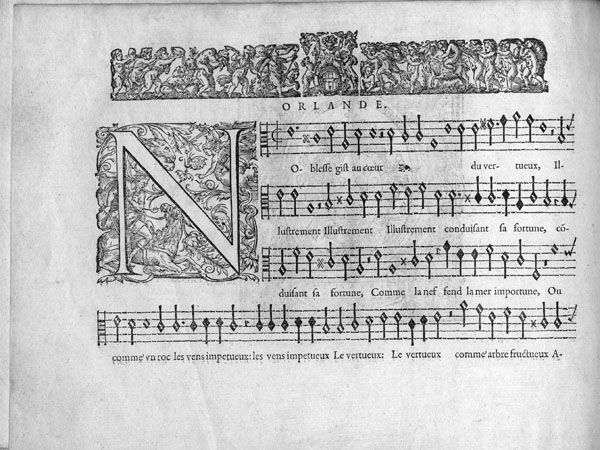 ORLANDE.
NOblesse gist au cœur du vertueux, Il-
lustrement Illustrement Illustrement conduisant sa fortune, cō-
duisant sa fortune, Comme la nef fend la mer importune, Ou
comme vn roc les vens impetueux: les vens impetueux Le vertueux: Le vertueux comme arbre fructueux A-